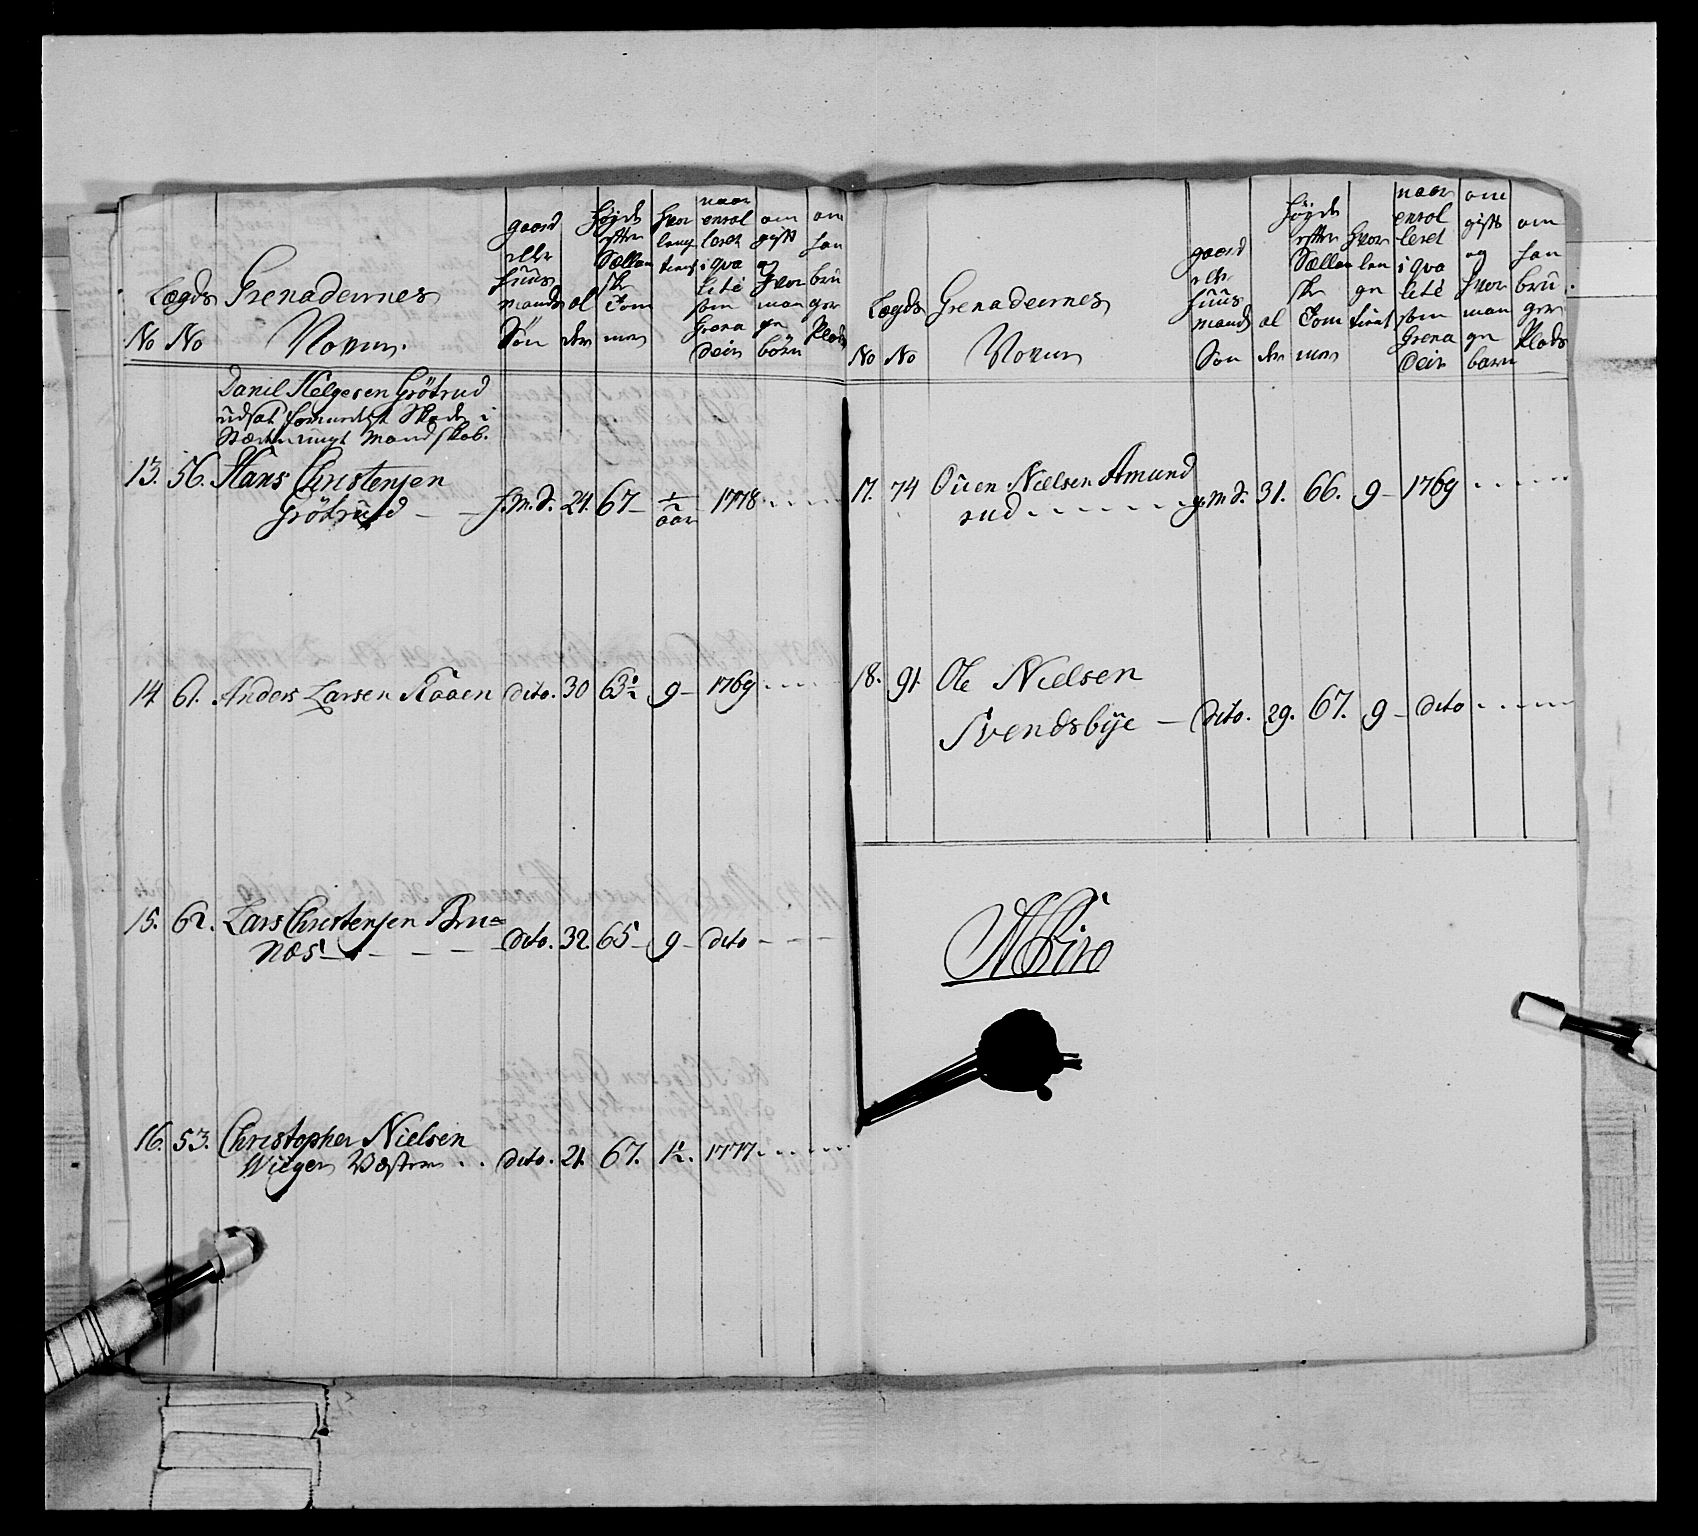 No
Lægds No
Grenadeurnes Navne.
gaard eller huus mands Søn
al der
høyde efter Sællan ske Tom mer
hvor leng tient
naar enrol leret i qva lité som Grena deir
om gift og hvor man ge børn
om han bru ger Plads
Danil Helgesen Grötrud
udsat formedelst Skade i
13. 56. Hans Christensen
Grötrud - - h.m.S. 24. 67 - ½ aar 1778. . . . .
14 61. Anders Larsen Raaen dito. 30 63½ 9 - 1769 . . . . .
15. 62. Lars Christensen Bru=
næs - - - - dito. 32 65 - 9 - dito - - - -
16. 53. Christopher Nielsen
Wiiger Væstre . . dito. 21. 67. 1½. 1777. . . . .
No
Lægds No
Grenadeurnes Navne
gaard eller huus mands Søn
al der
høyde efter Sællan ske Tom mer
hvor len ge tient
naar enrol leret i qva lité som Grena deir
om gift og hvor man ge barn
om han bru ger Plads
17. 74 Ouen Nielsen Amund
rud . . . . . . g.m.S. 31. 66. 9 - 1769 . . . . .
18. 91. Ole Nielsen
Svendsbye - dito. 29. 67. 9 - dito . . . . .